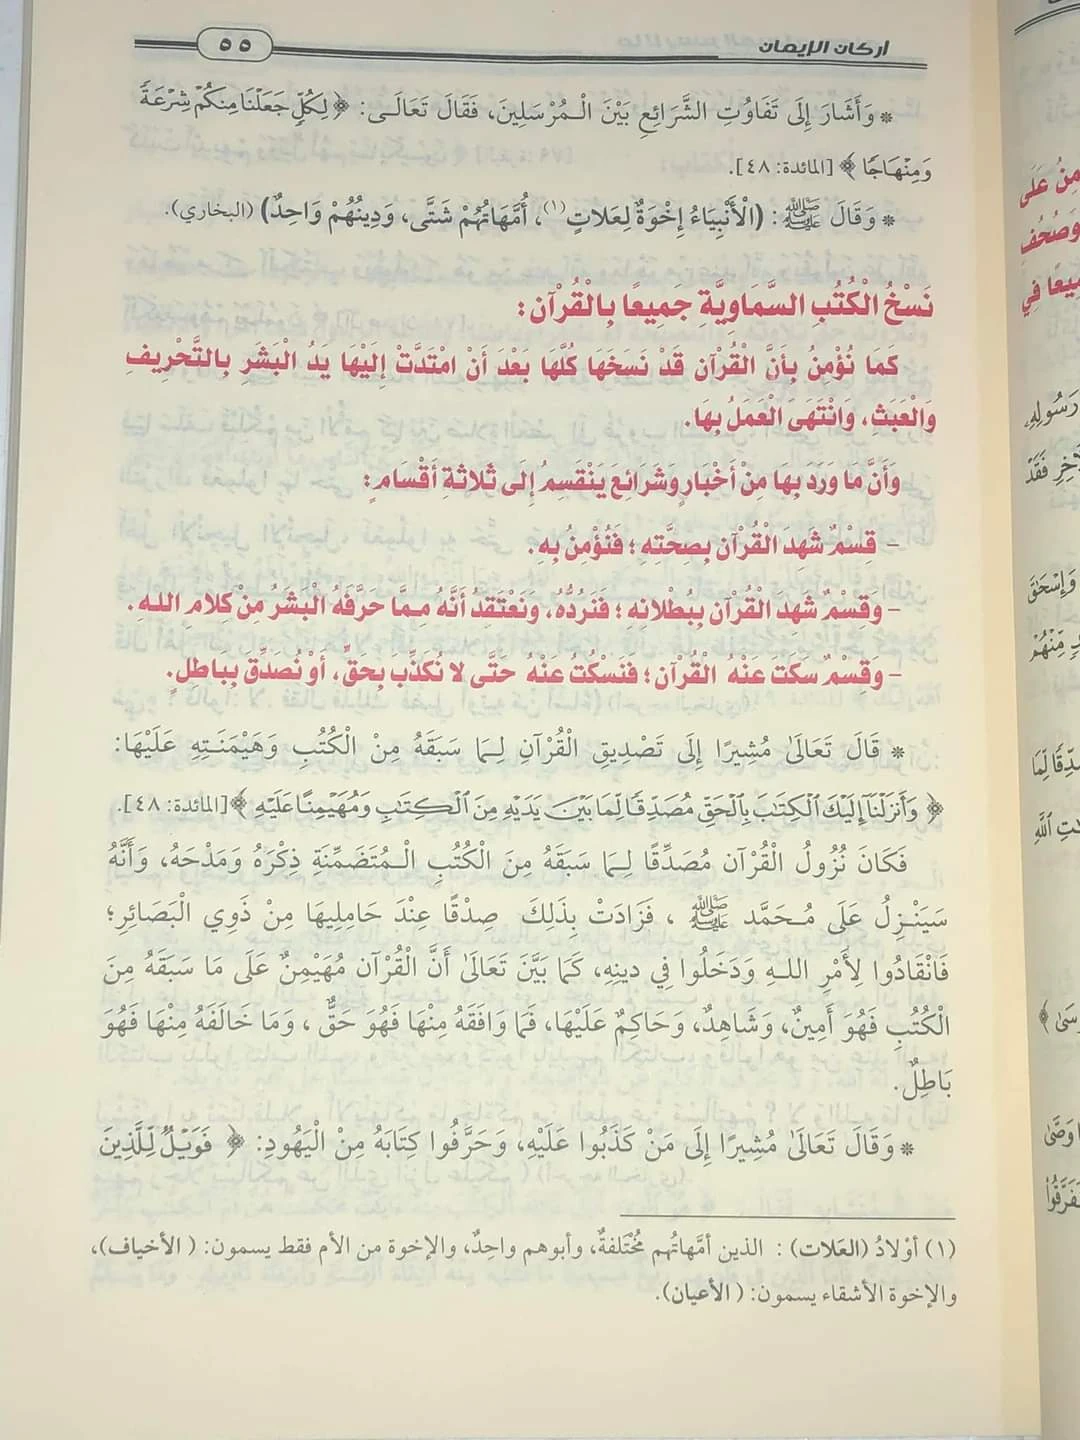 أركان الإيمان ٥٥
* وَأَشَارَ إِلَى تَفَاوُتِ الشَّرَائِعِ بَيْنَ الْـمُرْسَلِينَ، فَقَالَ تَعَالَـى: ﴿ لِكُلٍّ جَعَلْنَا مِنكُمْ شِرْعَةً
وَمِنْهَاجًا ﴾ [المائدة: ٤٨].
* وَقَالَ ﷺ: (الْأَنْبِيَاءُ إِخْوَةٌ لِعَلاتٍ(١)، أُمَّهَاتُهُمْ شَتَّى، وَدِينُهُمْ وَاحِدٌ) (البخاري).
نَسْخُ الْكُتُبِ السَّمَاوِيَّةِ جَمِيعًا بِالْقُرْآنِ:
كَمَا نُؤْمِنُ بِأَنَّ الْقُرْآنَ قَدْ نَسَخَهَا كُلَّهَا بَعْدَ أَنْ امْتَدَّتْ إِلَيْهَا يَدُ الْبَشَرِ بِالتَّحْرِيفِ
وَالْعَبَثِ، وَانْتَهَى الْعَمَلُ بِهَا.
وَأَنَّ مَا وَرَدَ بِهَا مِنْ أَخْبَارٍ وَشَرَائِعَ يَنْقَسِمُ إِلَى ثَلَاثَةِ أَقْسَامٍ:
- قِسْمٌ شَهِدَ الْقُرْآنُ بِصِحَّتِهِ؛ فَنُؤْمِنُ بِهِ.
- وَقِسْمٌ شَهِدَ الْقُرْآنُ بِبُطْلانِهِ؛ فَنَرُدُّهُ، وَنَعْتَقِدُ أَنَّهُ مِمَّا حَرَّفَهُ الْبَشَرُ مِنْ كَلامِ اللهِ.
- وَقِسْمٌ سَكَتَ عَنْهُ الْقُرْآنُ؛ فَنَسْكُتُ عَنْهُ حَتَّى لا نُكَذِّبَ بِحَقٍّ، أَوْ نُصَدِّقَ بِبَاطِلٍ.
* قَالَ تَعَالَىٰ مُشِيرًا إِلَى تَصْدِيقِ الْقُرْآنِ لِـمَا سَبَقَهُ مِنْ الْكُتُبِ وَهَيْمَنَـتِهِ عَلَيْهَا:
﴿ وَأَنزَلْنَآ إِلَيْكَ الْكِتَٰبَ بِالْحَقِّ مُصَدِّقًا لِّمَا بَيْنَ يَدَيْهِ مِنَ الْكِتَٰبِ وَمُهَيْمِنًا عَلَيْهِ ﴾ [المائدة: ٤٨].
فَكَانَ نُزُولُ الْقُرْآنِ مُصَدِّقًا لِـمَا سَبَقَهُ مِنَ الْكُتُبِ الْـمُتَضَمِّنَةِ ذِكْرَهُ وَمَدْحَهُ، وَأَنَّهُ
سَيَنْـزِلُ عَلَى مُـحَمَّد ﷺ ، فَزَادَتْ بِذَلِكَ صِدْقًا عِنْدَ حَامِلِيهَا مِنْ ذَوِي الْبَصَائِرِ؛
فَانْقَادُوا لِأَمْرِ اللـهِ وَدَخَلُوا فِي دينِهِ، كَمَا بَيَّنَ تَعَالَىٰ أَنَّ الْقُرْآنَ مُهَيْمِنٌ عَلَى مَا سَبَقَهُ مِنَ
الْكُتُبِ فَهُوَ أَمِينٌ، وَشَاهِدٌ، وَحَاكِمٌ عَلَيْهَا، فَمَا وَافَقَهُ مِنْهَا فَهُوَ حَقٌّ ، وَمَا خَالَفَهُ مِنْهَا فَهُوَ
بَاطِلٌ.
* وَقَالَ تَعَالَىٰ مُشِيرًا إِلَى مَنْ كَذَبُوا عَلَيْهِ، وَحَرَّفُوا كِتَابَهُ مِنْ الْيَهُودِ: ﴿ فَوَيْلٌ لِّلَّذِينَ
(١) أوْلادُ (العَلات) : الذين أمَّهاتُهم مُخْتَلفةٌ، وأبوهم واحِدٌ، والإخوة من الأم فقط يسمون: ( الأخياف)،
والإخوة الأشقاء يسمون: ( الأعيان).